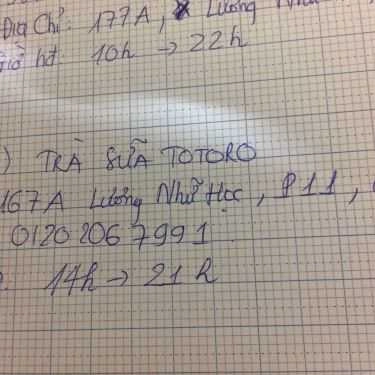 Địa Chỉ: 177A, Lương Như
Giờ hđ: 10h → 22h
) TRÀ SỮA TOTORO
167A Lương Như Học, P11,
0120 206 7991
14h → 21h